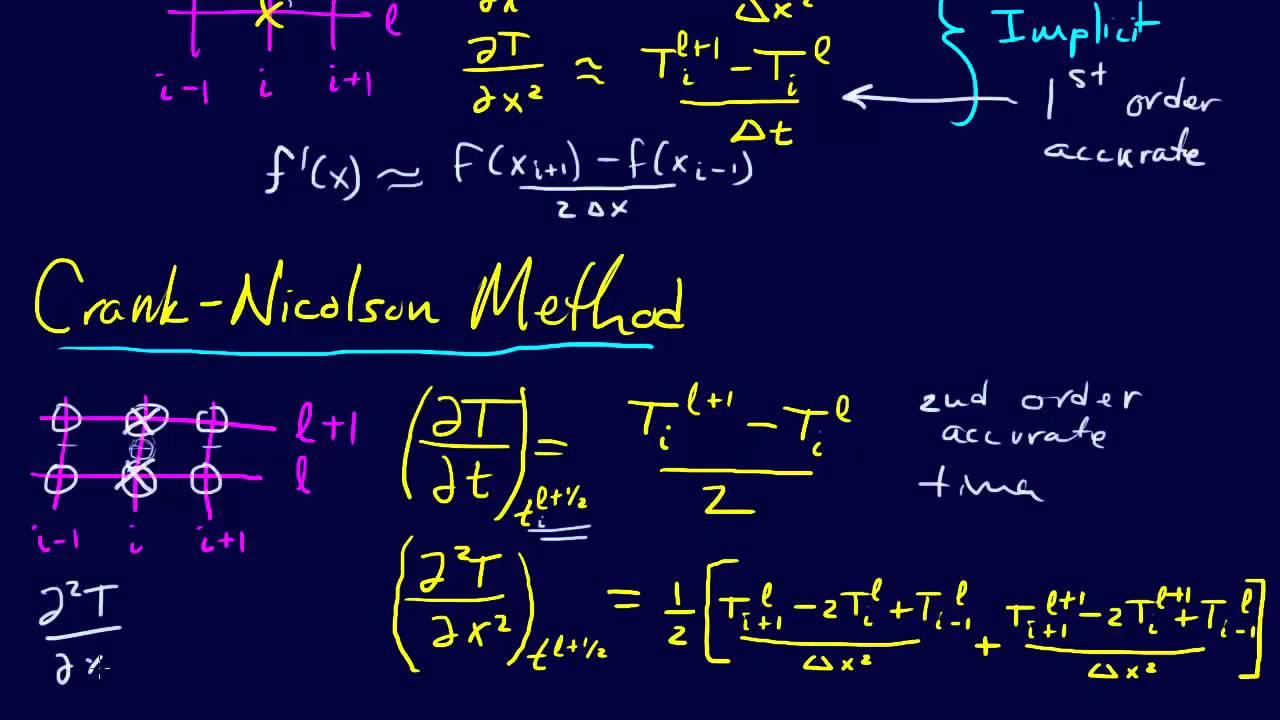 ∂x Δx²
l
Implicit
i-1 i i+1
∂T/∂x² ≈ (T_i^{l+1} - T_i^l)/Δt
1st order
accurate
f'(x) ≈ (f(x_{i+1}) - f(x_{i-1}))/(2Δx)
Crank-Nicolson Method
l+1
l
i-1 i i+1
(∂T/∂t)_{t_i^{l+1/2}} = (T_i^{l+1} - T_i^l)/2
2nd order
accurate
time
∂²T/∂x
(∂²T/∂x²)_{t^{l+1/2}} = 1/2 [(T_{i+1}^l - 2T_i^l + T_{i-1}^l)/Δx² + (T_{i+1}^{l+1} - 2T_i^{l+1} + T_{i-1}^l)/Δx²]